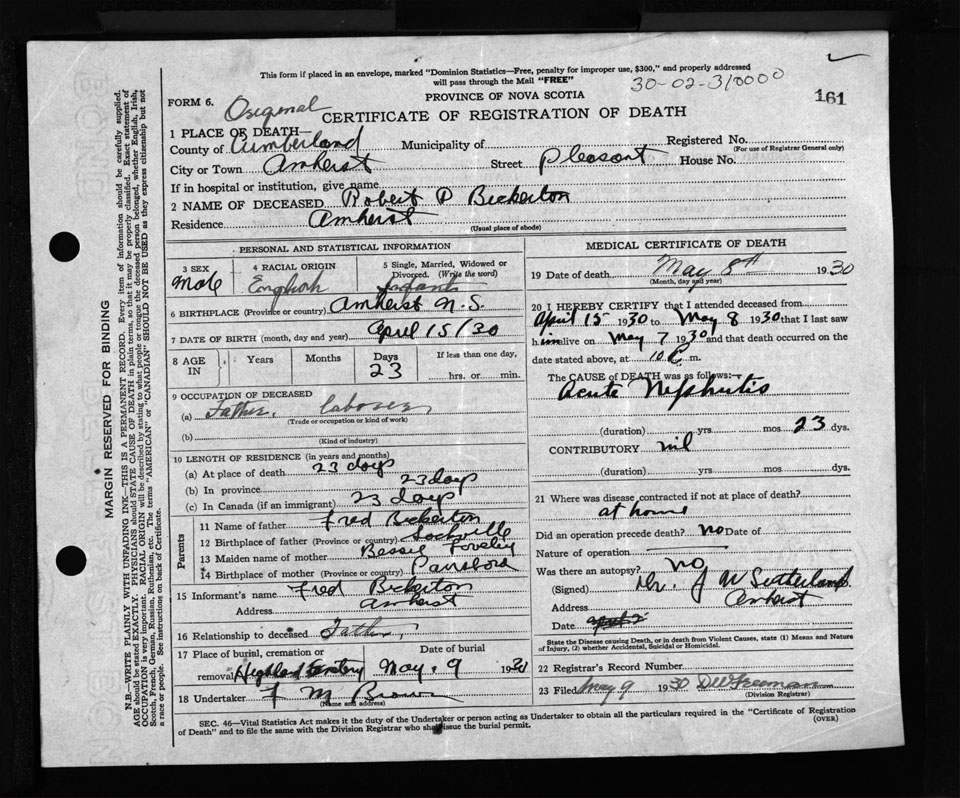 This form if placed in an envelope, marked "Dominion Statistics—Free, penalty for improper use, $300," and properly addressed
will pass through the Mail "FREE"
30-02-310000
161
PROVINCE OF NOVA SCOTIA
FORM 6. Original
CERTIFICATE OF REGISTRATION OF DEATH
1 PLACE OF DEATH—
County of Cumberland Municipality of Registered No.
(For use of Registrar General only)
City or Town Amherst Street Pleasant House No.
If in hospital or institution, give name
2 NAME OF DECEASED Robert D Bickerton
Residence Amherst
(Usual place of abode)
PERSONAL AND STATISTICAL INFORMATION
3 SEX Male
4 RACIAL ORIGIN English
5 Single, Married, Widowed or Divorced. (Write the word) Infant
6 BIRTHPLACE (Province or country) Amherst N.S.
7 DATE OF BIRTH (month, day and year) April 15/30
8 AGE IN Years Months Days 23 If less than one day, hrs. or min.
9 OCCUPATION OF DECEASED
(a) Father. laborer
(Trade or occupation or kind of work)
(b)
(Kind of industry)
10 LENGTH OF RESIDENCE (in years and months)
(a) At place of death 23 days
(b) In province 23 days
(c) In Canada (if an immigrant) 23 days
Parents
11 Name of father Fred Bickerton
12 Birthplace of father (Province or country) Sackville
13 Maiden name of mother Bessie
14 Birthplace of mother (Province or country)
15 Informant's name Fred Bickerton
Address Amherst
16 Relationship to deceased Father
17 Place of burial, cremation or removal Highland Cemetery
Date of burial May. 9 1930
18 Undertaker F M Brown
(Name and address)
MEDICAL CERTIFICATE OF DEATH
19 Date of death May 8th 1930
(Month, day and year)
20 I HEREBY CERTIFY that I attended deceased from
April 15 1930 to May 8 1930 that I last saw
him alive on May 7 1930 and that death occurred on the
date stated above, at 10 m.
The CAUSE of DEATH was as follows:—
Acute Nephritis
(duration) yrs mos 23 dys.
CONTRIBUTORY nil
(duration) yrs. mos. dys.
21 Where was disease contracted if not at place of death?
at home
Did an operation precede death? no Date of
Nature of operation
Was there an autopsy? no
(Signed) Dr. J W Sutherland
Address Amherst
Date
State the Disease causing Death, or in death from Violent Causes, state (1) Means and Nature
of Injury, (2) whether Accidental, Suicidal or Homicidal.
22 Registrar's Record Number
23 Filed May 9 1930 Freeman
(Division Registrar)
SEC. 46—Vital Statistics Act makes it the duty of the Undertaker or person acting as Undertaker to obtain all the particulars required in the "Certificate of Registration
of Death" and to file the same with the Division Registrar who shall issue the burial permit. (OVER)
MARGIN RESERVED FOR BINDING
N.B.—WRITE PLAINLY WITH UNFADING INK—THIS IS A PERMANENT RECORD. Every item of information should be carefully supplied.
AGE should be stated EXACTLY. PHYSICIANS should STATE CAUSE OF DEATH in plain terms, so that it may be properly classified. Exact statement of
OCCUPATION is very important. RACIAL ORIGIN will be described by stating to what people or tongue the deceased person belonged, whether English, Irish,
Scotch, French, German, Russian, Ruthenian, etc. The terms "AMERICAN" or "CANADIAN" SHOULD NOT BE USED as they express citizenship but not
a race or people. See instructions on back of Certificate.